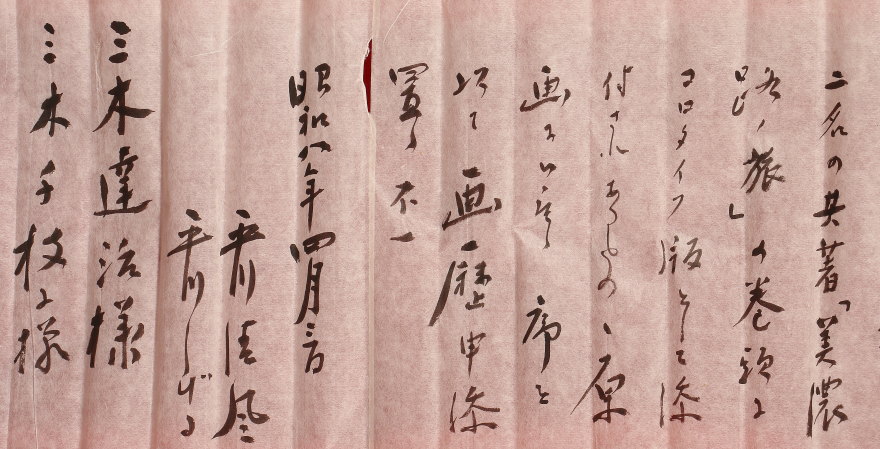 二名の共著「美濃
路ノ旅」の巻頭に
コロタイプ版として添
付されあるものゝ原
画に
序を
以て画歴申添
置く 不一
昭和八年四月三日
平川清風
平川しげる
三木達治様
三木千枝子様